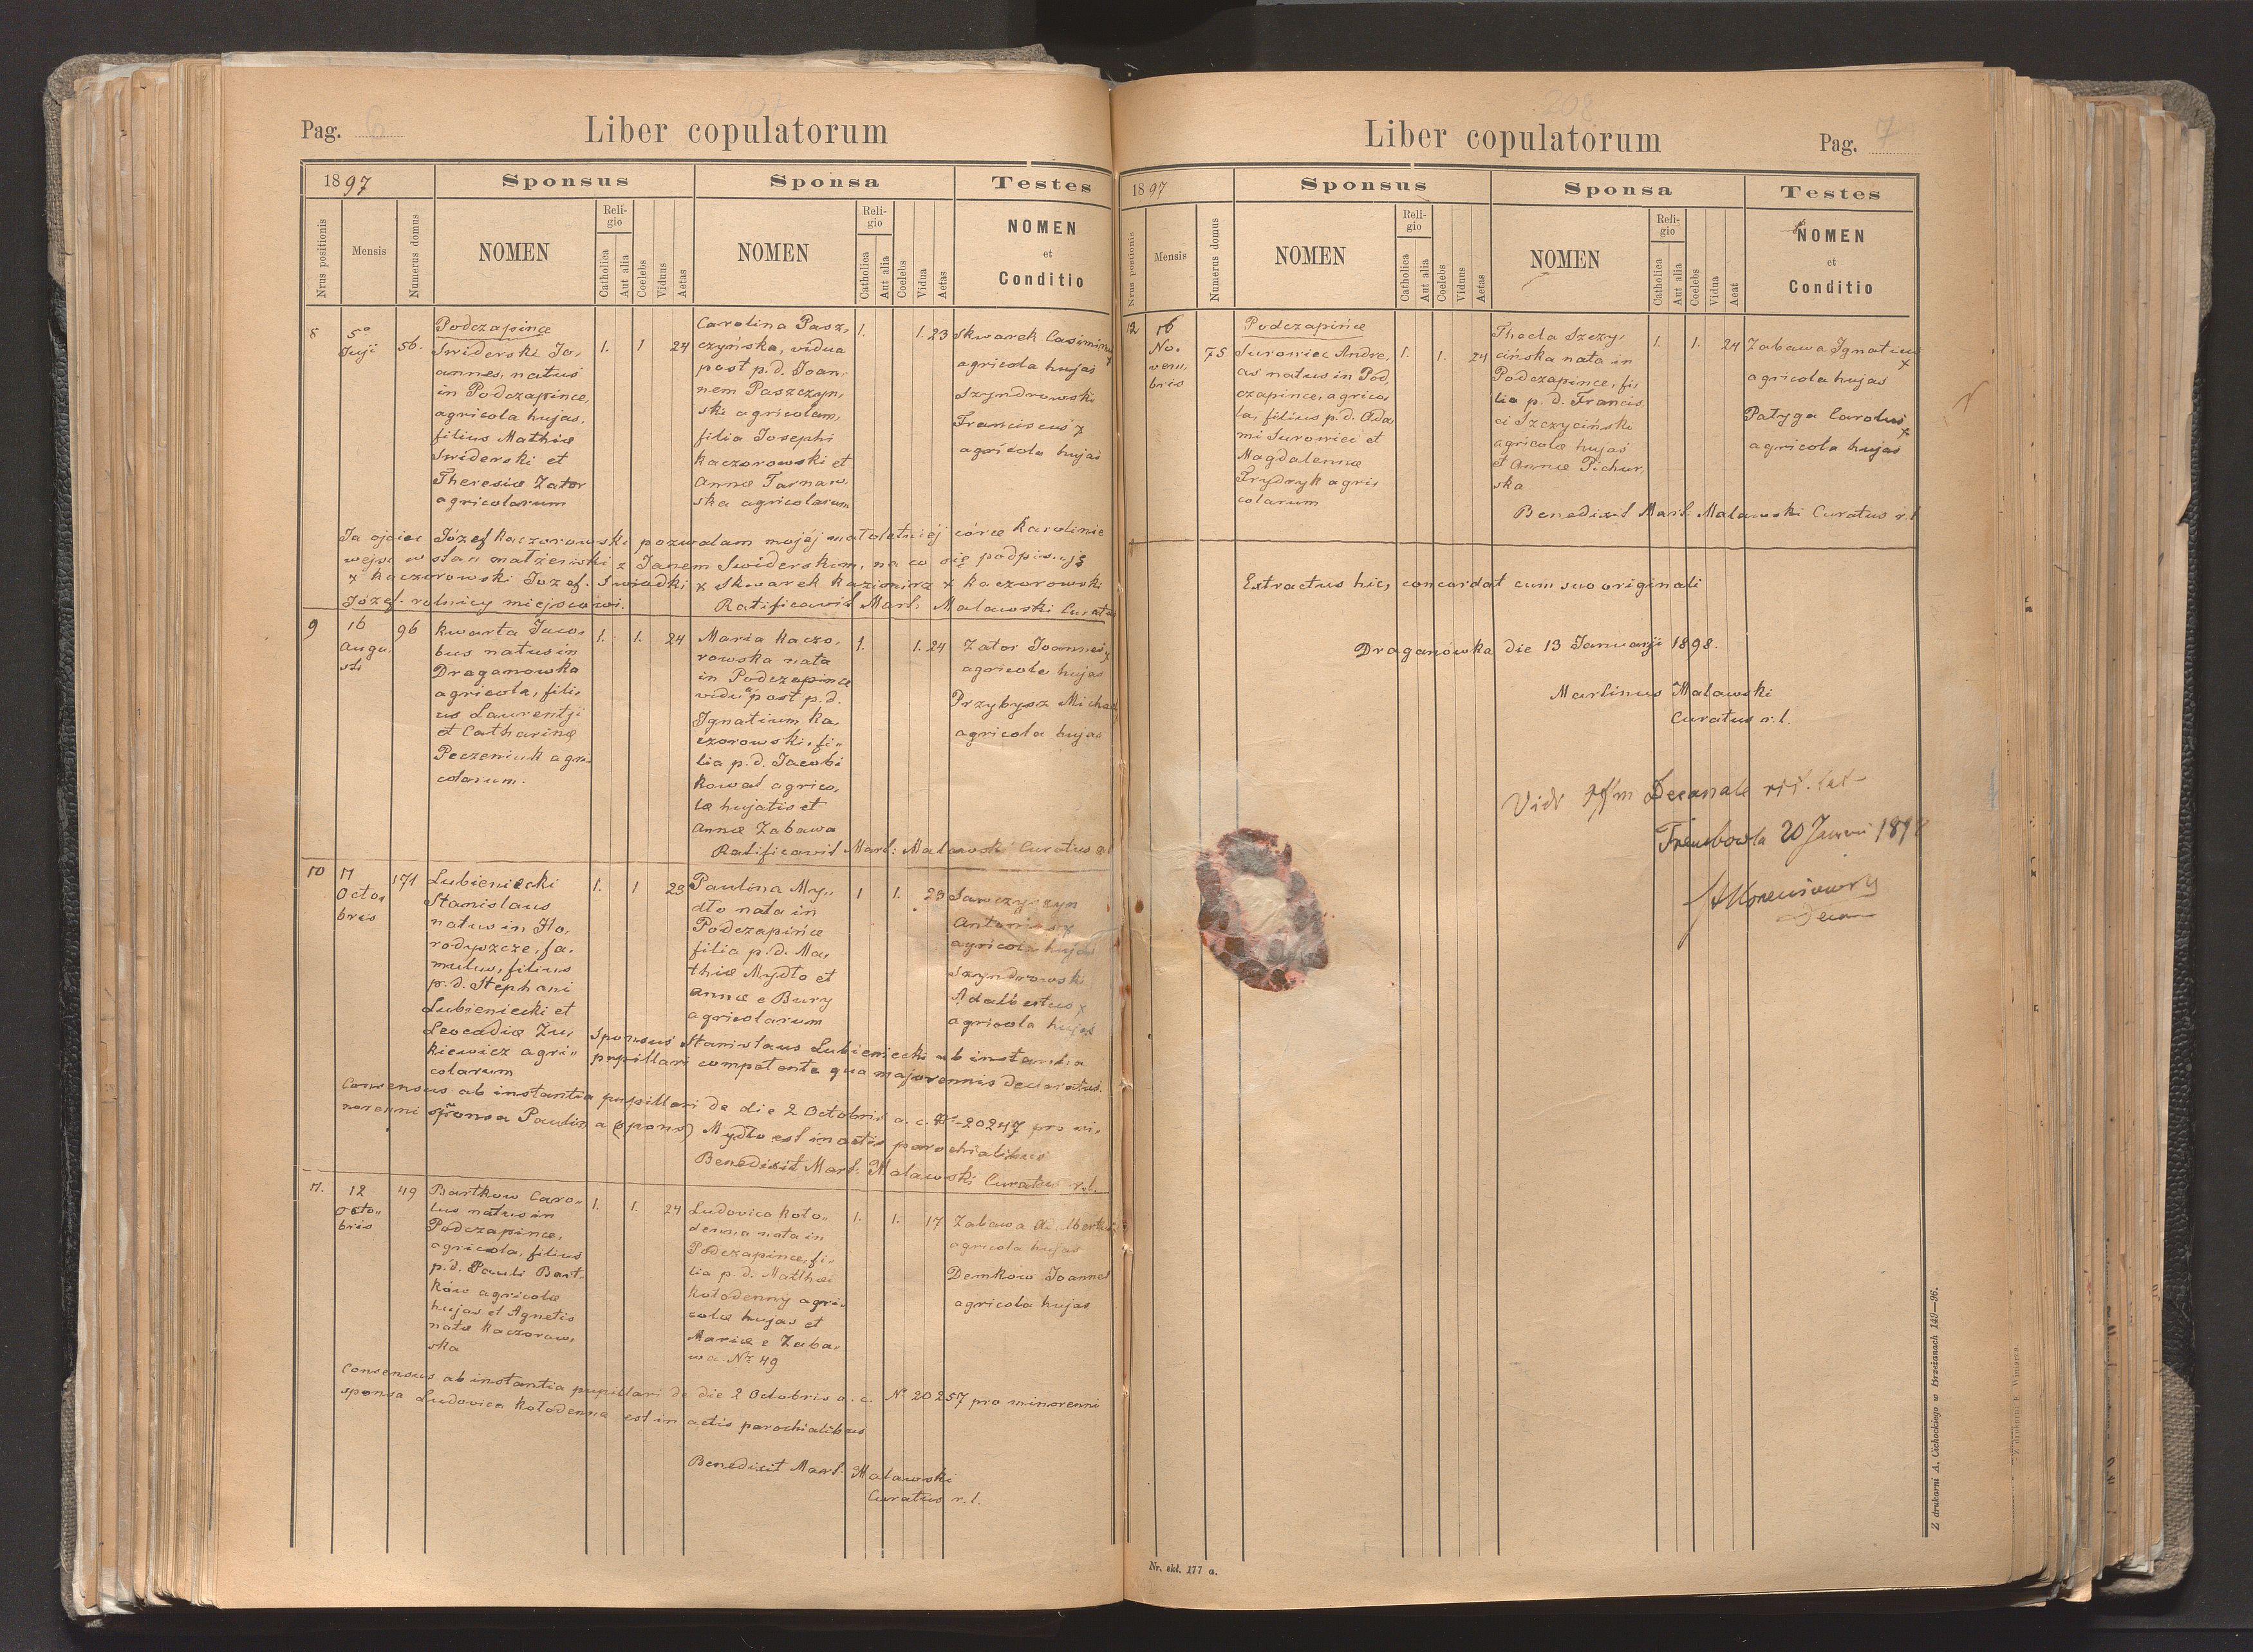 Pag. 6
Liber copulatorum
1897
Sponsus
Sponsa
Testes
Nrus positionis
Mensis
Numerus domus
NOMEN
Religio
Catholica
Aut alia
Coelebs
Viduus
Aetas
NOMEN
Religio
Catholica
Aut alia
Coelebs
Vidua
Aetas
NOMEN
et
Conditio
8
5º
56.
Podczapińce
Swiderski Jo,
annes, natus
in Podczapince,
agricola hujas,
filius Mathiæ
Swiderski et
Theresiæ Zator
agricolarum
1.
1
24
Carolina Pasz,
czyńska, vidua
post p.d. Joan,
nem Paszczyn,
ski agricolam,
filia Josephi
Kaczorowski et
Annæ Tarnaw,
ska agricolarum
1.
1.
23
Skwarek Casimirus
agricola hujas
Szyndrowski
Franciscus x
agricola hujas
Ja ojciec Józef Kaczorowski pozwalam mojéj małoletniéj córce Karolinie
wejść w stan małżeński z Janem Swiderskim, na co się podpisuję
x Kaczorowski Jozef. Swiadki x Skwarek Kazimirz x Kaczorowski
Józef rolnicy miejscowi.
Ratificavit Mart: Malawski Curatus
9
16
Augu,
sti
96
Kwarta Jaco,
bus natus in
Draganowka
agricola, fili,
us Laurentji
et Catharinæ
Peczeniuk agri
colarum.
1.
1.
24
Maria Kaczo,
rowska nata
in Podczapince
vidua post p.d.
Ignatium Ka,
czorowski, fi,,
lia p.d. Jacobi
Kowal agrico,
læ hujatis et
Annæ Zabawa
1.
1.
24
Zator Joannes x
agricola hujas
Przybysz Michael
agricola hujas
Ratificavit Mart: Malawski Curatus r.l
10
11
Octo,
bris
171
Lubieniecki
Stanislaus
natus in Ho,
rodyszcze, fa,
mulus, filius
p.d. Stephani
Lubieniecki et
Leocadiæ Zu,
kiewicz agri,,
colarum
1.
1
23
Paulina My,,
dło nata in
Podczapińce
filia p.d. Ma,
thiæ Mydło et
Annæ e Bury
agricolarum
1
1.
23
Antonius x
agricola hujas
Szyndrowski
Adalbertus x
agricola hujas
Sponsus Stanislaus Lubieniecki ab instantia
pupillari competente qua majorennis declaratus.
Consensus ab instantia pupillari de die 2 Octobris a.c. Nr 20247 pro mi,
norenni sponsa Paulina (spons) Mydło est in actis parochialibus
Benedixit Mart: Malawski Curatus r.l.
11.
12
Octo,,
bris
49
Bartkow Caro,,
lus natus in
Podczapince,
agricola, filius
p.d. Pauli Bart,
ków agricolæ
hujas et Agnetis
natæ Kaczorow,
ska
1.
1.
24
Ludovica Koło,,
denna nata in
Podczapince, fi,,
lia p.d. Mathæi
Kołodenny agri,
colæ hujas et
Mariæ e Zaba,
wa. Nr 49
1.
1.
17
Zabawa Adalbertus
agricola hujas
Demkow Joannes
agricola hujas
Consensus ab instantia pupillari de die 2 Octobris a.c. Nr 20257 pro minorenni
sponsa Ludovica Kołodenna est in actis parochialibus
Benedixit Mart. Malawski
Curatus r.l.
208
Liber copulatorum
Pag. 7
1897
Sponsus
Sponsa
Testes
Nrus postionis
Mensis
Numerus domus
NOMEN
Religio
Catholica
Aut alia
Coelebs
Viduus
Aetas
NOMEN
Religio
Catholica
Aut alia
Coelebs
Vidua
Aeat
NOMEN
et
Conditio
12
16
No,
vem,
bris
75
Podczapińce
Surowiec Andre,
as natus in Pod,
czapince, agrico,
la, filius p.d. Ada
mi Surowiec et
Magdalennæ
Frydryk agri,
colarum
1.
1.
24
Thecla Szczy,
cińska nata in
Podczapince, fi,
lia p.d. Francis,
ci Szczyciński
agricolæ hujas
et Annæ Pichur,
ska
1.
1.
24
Zabawa Ignatius
x
agricola hujas
Patyga Carolus
x
agricola hujas
Benedixit Mart: Malawski Curatus r.l
Extractus hic, concordat cum suo originali
Draganówka die 13 Januarji 1898.
Martinus Malawski
Curatus r.l.
Decanale rit. lat
Trembowla 20 1898
Decan
Z drukarni A. Cichockiego w Brzeżanach 149—96.
Nr. skł. 177 a.